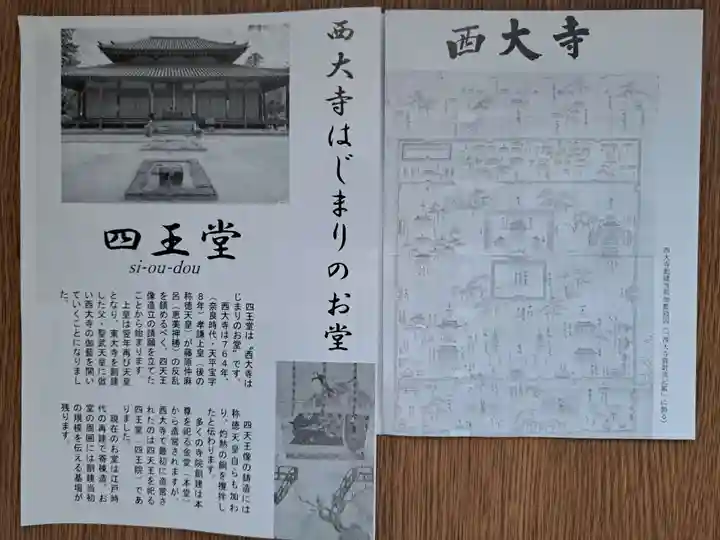 西大寺はじまりのお堂
四王堂
si-ou-dou
四王堂は“西大寺は
じまりのお堂”です。
西大寺は７６４年、
（奈良時代、天平宝字
８年）孝謙上皇（後の
称徳天皇）が藤原仲麻
呂（恵美押勝）の反乱
を鎮めるべく、四天王
像造立の請願を立てた
ことから始まります。
上皇は翌年再び天皇
となり、東大寺を創建
した父・聖武天皇に倣
い西大寺の伽藍を開い
ていくことになりまし
た。
四天王像の鋳造には
称徳天皇自らも加わ
り、灼熱の銅を攪拌し
たと伝わります。
多くの寺院創建は本
尊を祀る金堂（本堂）
から造営されますが、
西大寺で最初に造営さ
れたのは四天王を祀る
四王堂（四王院）であ
りました。
現在のお堂は江戸時
代の再建で寄棟造。お
堂の周囲には創建当初
の規模を伝える基壇が
残ります。
西大寺